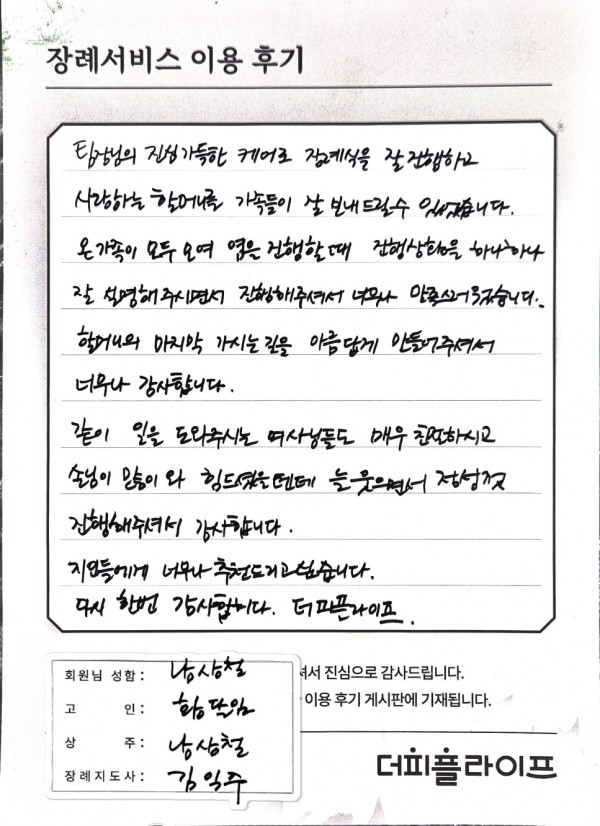 장례서비스 이용 후기
팀장님의 진심가득한 케어로 장례식을 잘 진행하고
사랑하는 할머니를 가족들이 잘 보내드릴수 있었습니다.
온가족이 모두 모여 염을 진행할때 진행상황을 하나하나
잘 설명해주시면서 진행해주셔서 너무나 만족스러웠습니다.
할머니의 마지막 가시는길을 아름답게 만들어주셔서
너무나 감사합니다.
같이 일을 도와주시는 여사님들도 매우 친절하시고
손님이 많이 와 힘드셨을텐데 늘 웃으면서 정성껏
진행해주셔서 감사합니다.
지인들에게 너무나 추천드리고싶습니다.
다시 한번 감사합니다. 더피플라이프.
회원님 성함: 남상철
고 인: 황닥임
상 주: 남상철
장례지도사: 김익주
셔서 진심으로 감사드립니다.
이용 후기 게시판에 기재됩니다.
더피플라이프